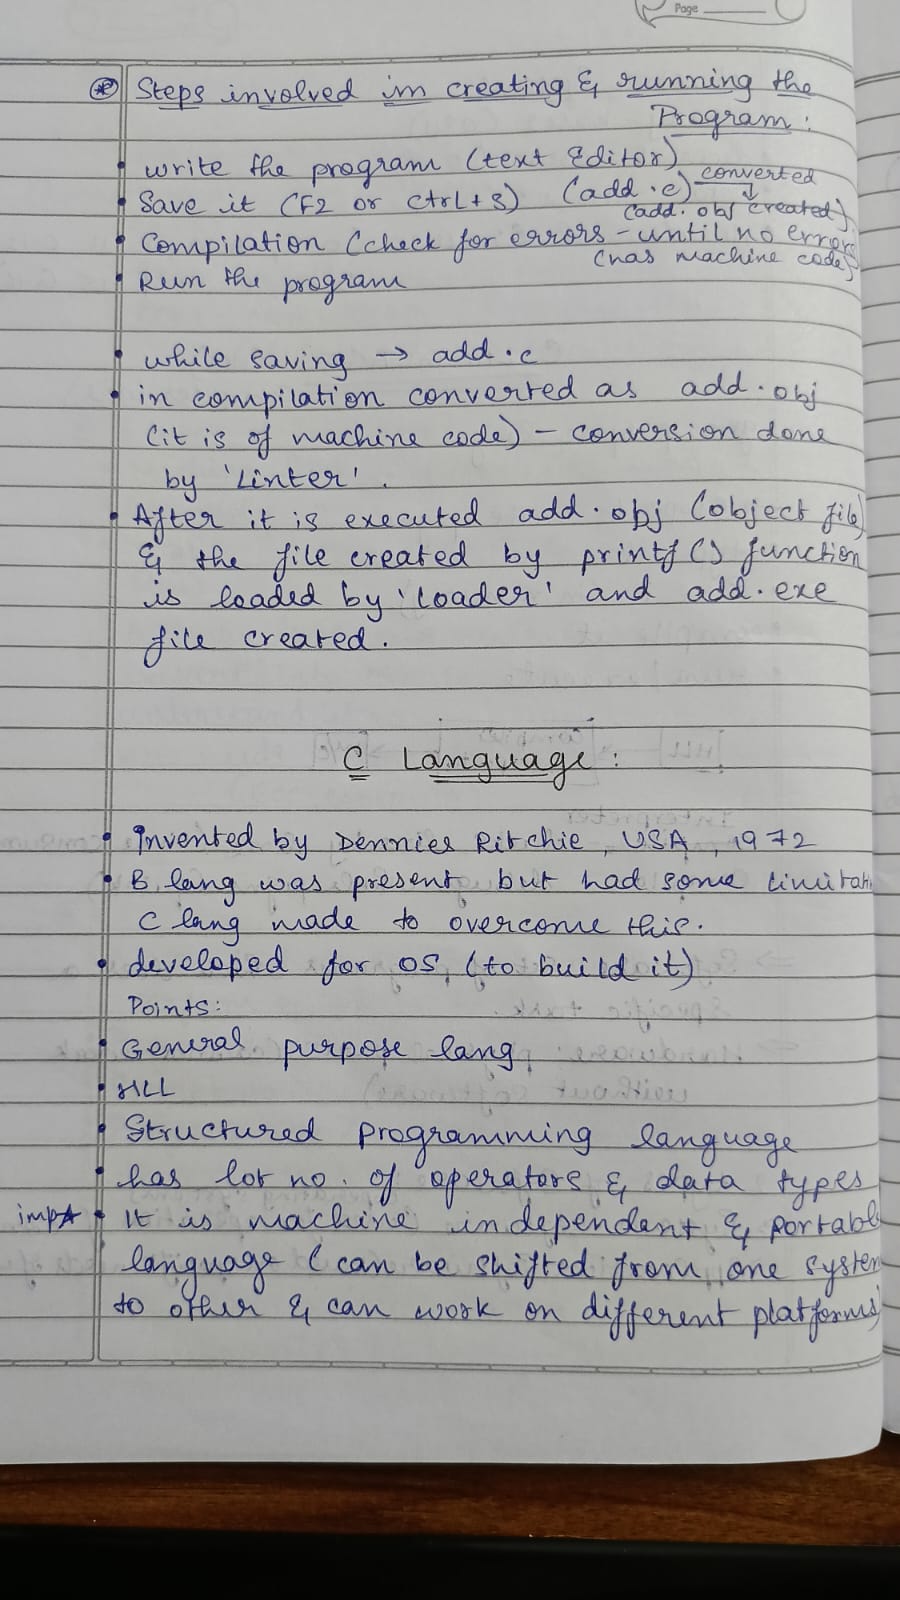 Page
Steps involved in creating & running the
Program :
write the program (text Editor)
Save it (F2 or ctrl+s) (add.c) converted
(add.obj created)
Compilation (check for errors - until no errors
(has machine code)
Run the program
while saving → add.c
in compilation converted as add.obj
(it is of machine code) - conversion done
by 'Linter'.
After it is executed add.obj (object file)
& the file created by printf() function
is loaded by 'loader' and add.exe
file created.
C Language :
Invented by Dennies Ritchie, USA, 1972
B lang was present, but had some
C lang made to overcome this.
developed for OS, (to build it)
Points:
General purpose lang
HLL
Structured programming language
has lot no. of operators & data types
imp It is machine independent & portable
language (can be shifted from one system
to other & can work on different platforms)